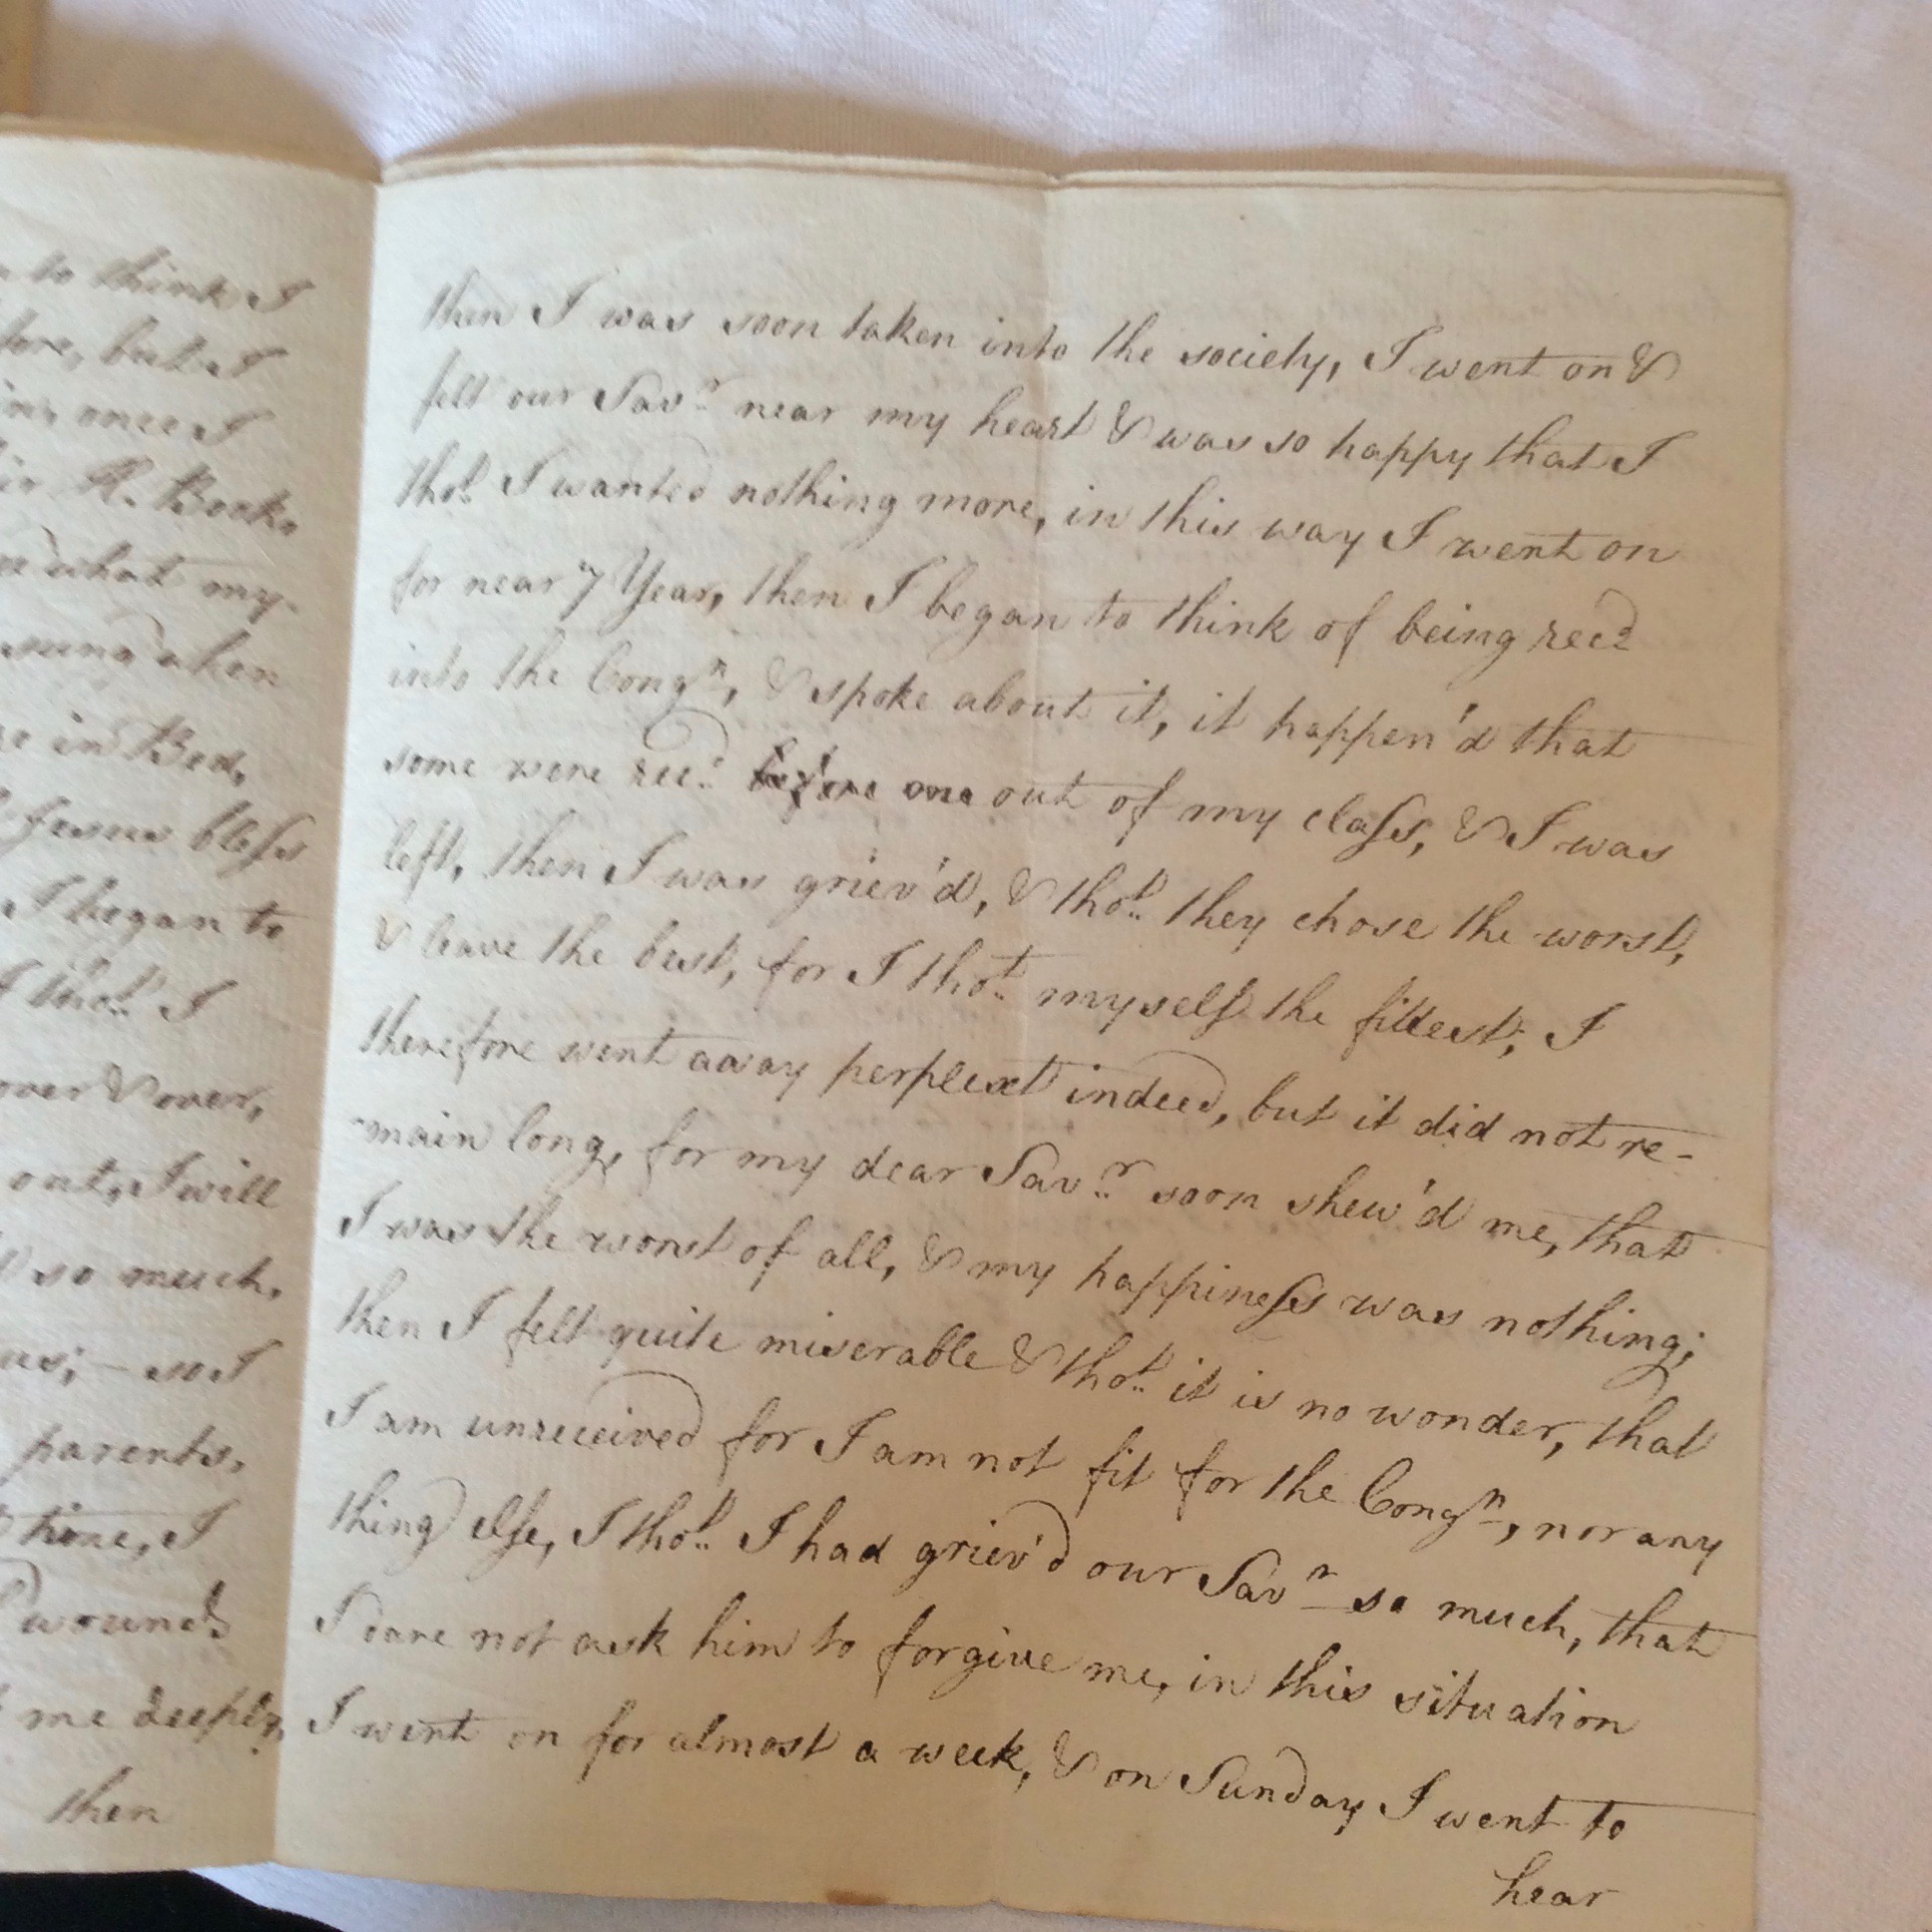 to think I
fore, but I
in, once I
H. Book,
what my-
sung when
in Bed,
Jesus bless
I began to
I thot. I
over & over,
out, I will
so much,
us; – so I
parents,
time, I
wounds
me deeply,
then
then I was soon taken into the society, I went on &
felt our Savr. near my heart & was so happy that I
thot. I wanted nothing more, in this way I went on
for near 7 Year, then I began to think of being recd.
into the Congn., & spoke about it, it happen'd that
some were recd. before one out of my class, & I was
left, then I was griev'd, & thot. they chose the worst,
& leave the best, for I thot. myself the fittest; I
therefore went away perplext indeed, but it did not re-
-main long, for my dear Savr. soon shew'd me, that
I was the worst of all, & my happiness was nothing;
then I felt quite miserable & thot. it is no wonder, that
I am unreceived for I am not fit for the Congn., nor any
thing else, I thot. I had griev'd our Savr. so much, that
I dare not ask him to forgive me, in this situation
I went on for almost a week, & on Sunday I went to
hear